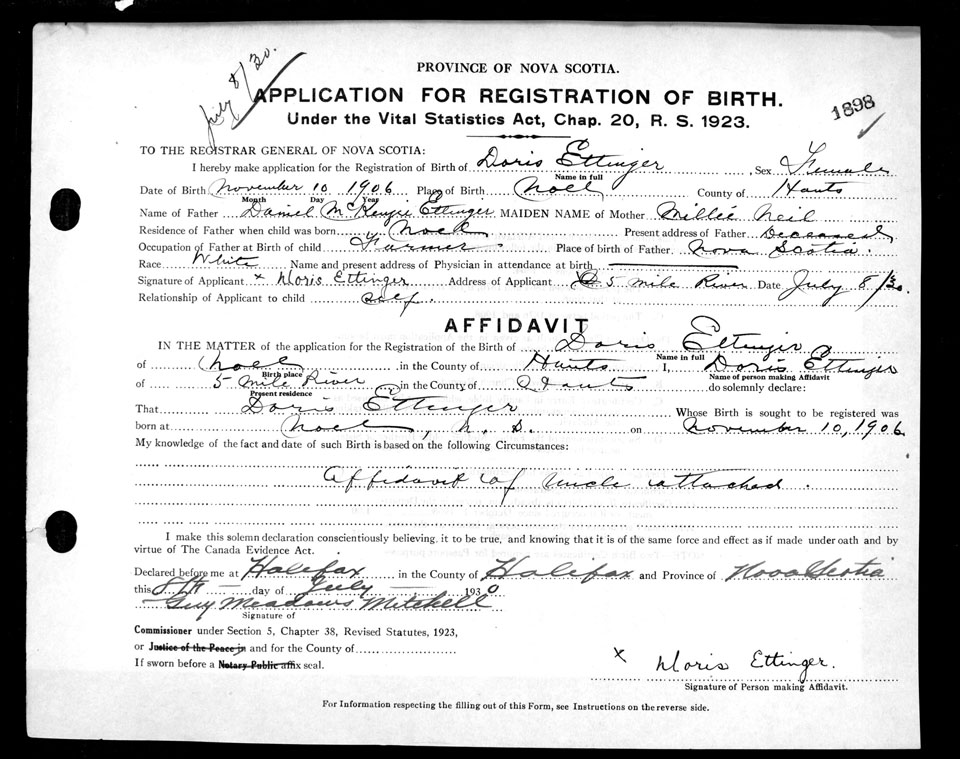 July 8/30.
PROVINCE OF NOVA SCOTIA.
APPLICATION FOR REGISTRATION OF BIRTH.
1898
Under the Vital Statistics Act, Chap. 20, R. S. 1923.
TO THE REGISTRAR GENERAL OF NOVA SCOTIA:
I hereby make application for the Registration of Birth of Doris Ettinger, Sex Female
Name in full
Date of Birth November 10 1906 Place of Birth Noel County of Hants
Month Day Year
Name of Father Daniel McKenzie Ettinger MAIDEN NAME of Mother Millie Neil
Residence of Father when child was born Noel Present address of Father Deceased
Occupation of Father at Birth of child Farmer. Place of birth of Father Nova Scotia.
Race White Name and present address of Physician in attendance at birth
Signature of Applicant x Doris Ettinger Address of Applicant 5 mile River Date July 8/30.
Relationship of Applicant to child self.
AFFIDAVIT
IN THE MATTER of the application for the Registration of the Birth of Doris Ettinger
Name in full
of Noel in the County of Hants I, Doris Ettinger
Birth place Name of person making Affidavit
of 5 Mile River in the County of Hants do solemnly declare:
Present residence
That Doris Ettinger Whose Birth is sought to be registered was
born at Noel, N. S. on November 10, 1906
My knowledge of the fact and date of such Birth is based on the following Circumstances:
Affidavit of Uncle attached.
I make this solemn declaration conscientiously believing it to be true, and knowing that it is of the same force and effect as if made under oath and by
virtue of The Canada Evidence Act.
Declared before me at Halifax in the County of Halifax and Province of Nova Scotia
this 8th day of July 1930
Guy Meadows Mitchell
Signature of
Commissioner under Section 5, Chapter 38, Revised Statutes, 1923,
or Justice of the Peace in and for the County of
If sworn before a Notary Public affix seal.
x Doris Ettinger.
Signature of Person making Affidavit.
For Information respecting the filling out of this Form, see Instructions on the reverse side.